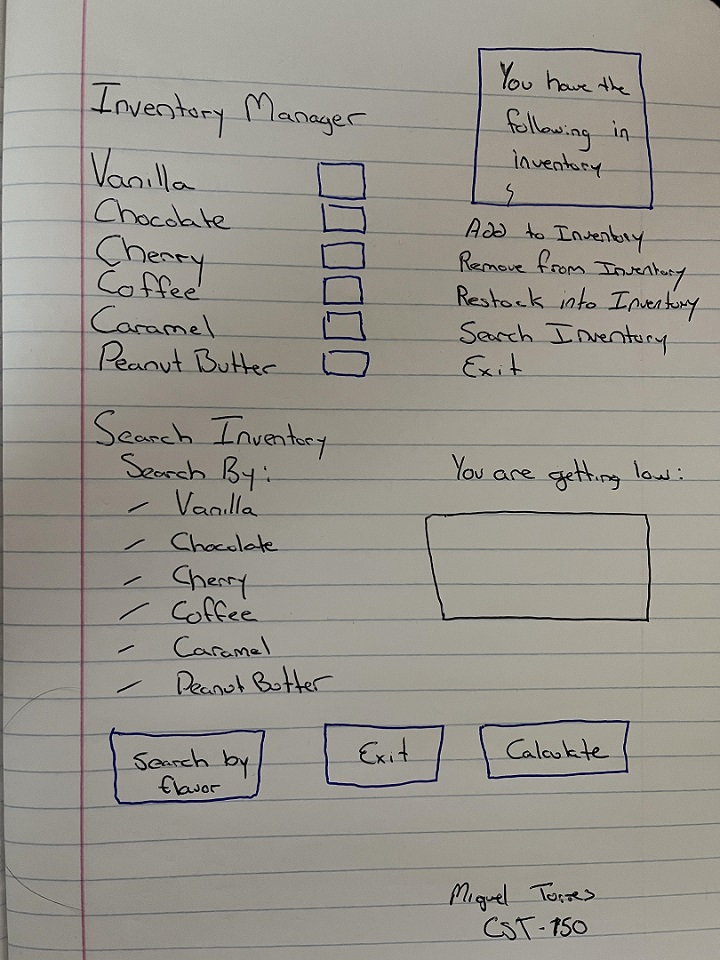 Inventory Manager
Vanilla
Chocolate
Cherry
Coffee
Caramel
Peanut Butter
You have the
following in
inventory
Add to Inventory
Remove from Inventory
Restock into Inventory
Search Inventory
Exit
Search Inventory
Search By:
- Vanilla
- Chocolate
- Cherry
- Coffee
- Caramel
- Peanut Butter
You are getting low:
Search by
flavor
Exit
Calculate
Miguel Torres
CST-150